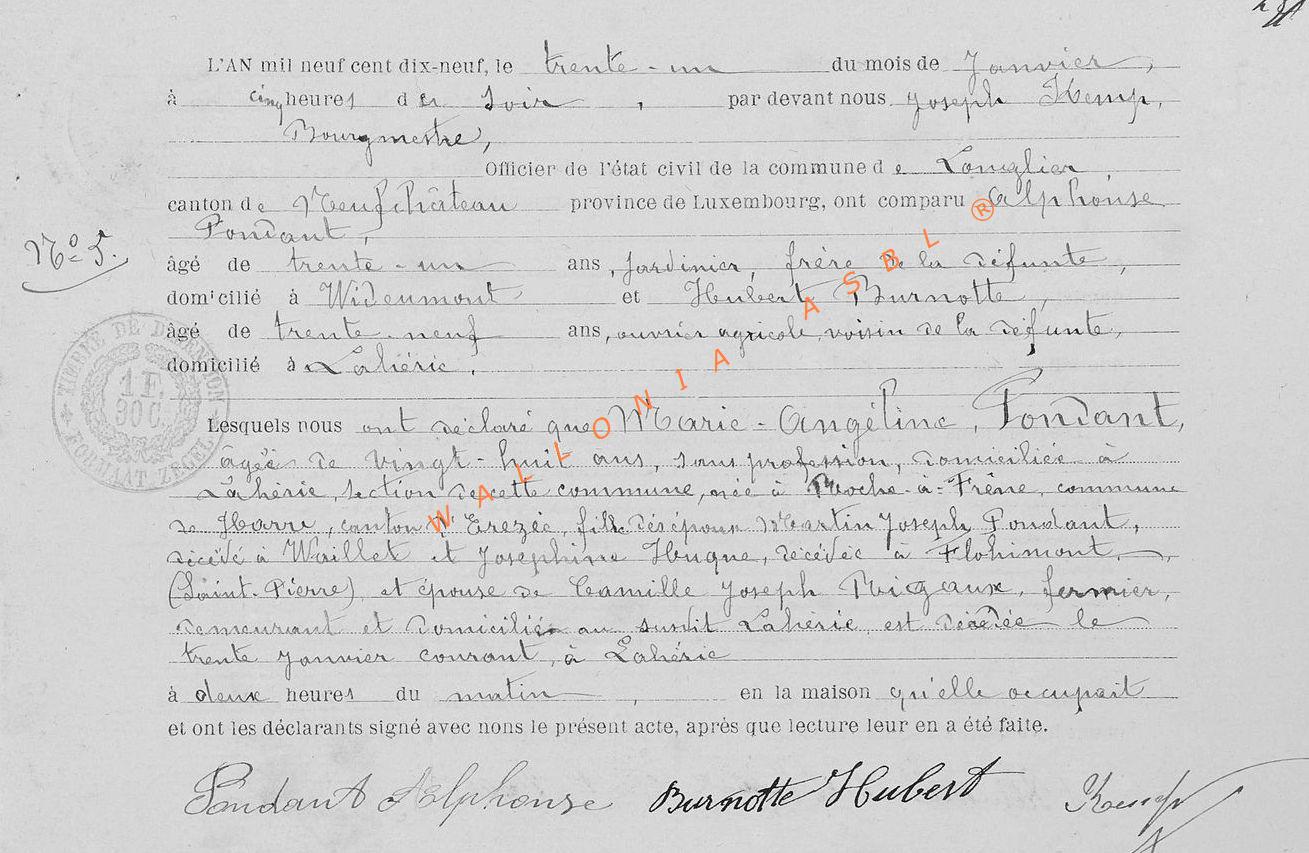 L'AN mil neuf cent dix-neuf, le trente-un du mois de Janvier,
à cinq heures du soir, par devant nous Joseph Kemp,
Bourgmestre,
Officier de l'état civil de la commune de Longlier,
canton de Neufchâteau province de Luxembourg, ont comparu Alphonse
Pondant,
N° 5.
âgé de trente-un ans, jardinier, frère de la défunte,
domicilié à Wideumont et Hubert Burnotte,
âgé de trente-neuf ans, ouvrier agricole, voisin de la défunte,
domicilié à Lahérie.
Lesquels nous ont déclaré que Marie-Angéline, Pondant,
âgée de vingt-huit ans, sans profession, domiciliée à
Lahérie, section de cette commune, née à Roche-à-Frêne, commune
de Harre, canton d'Erezée, fille des époux Martin Joseph Pondant,
décédé à Waillet et Joséphine Huque, décédée à Flohimont,
(Saint-Pierre), et épouse de Camille Joseph Rigaux, fermier,
demeurant et domicilié au susdit Lahérie, est décédée le
trente janvier courant, à Lahérie
à deux heures du matin, en la maison qu'elle occupait
et ont les déclarants signé avec nous le présent acte, après que lecture leur en a été faite.
Pondant Alphonse Burnotte Hubert Kemp
TIMBRE DE DIMENSION
1 F.
30 C.
FORMAAT ZEGEL
WALLONIA ASBL ®